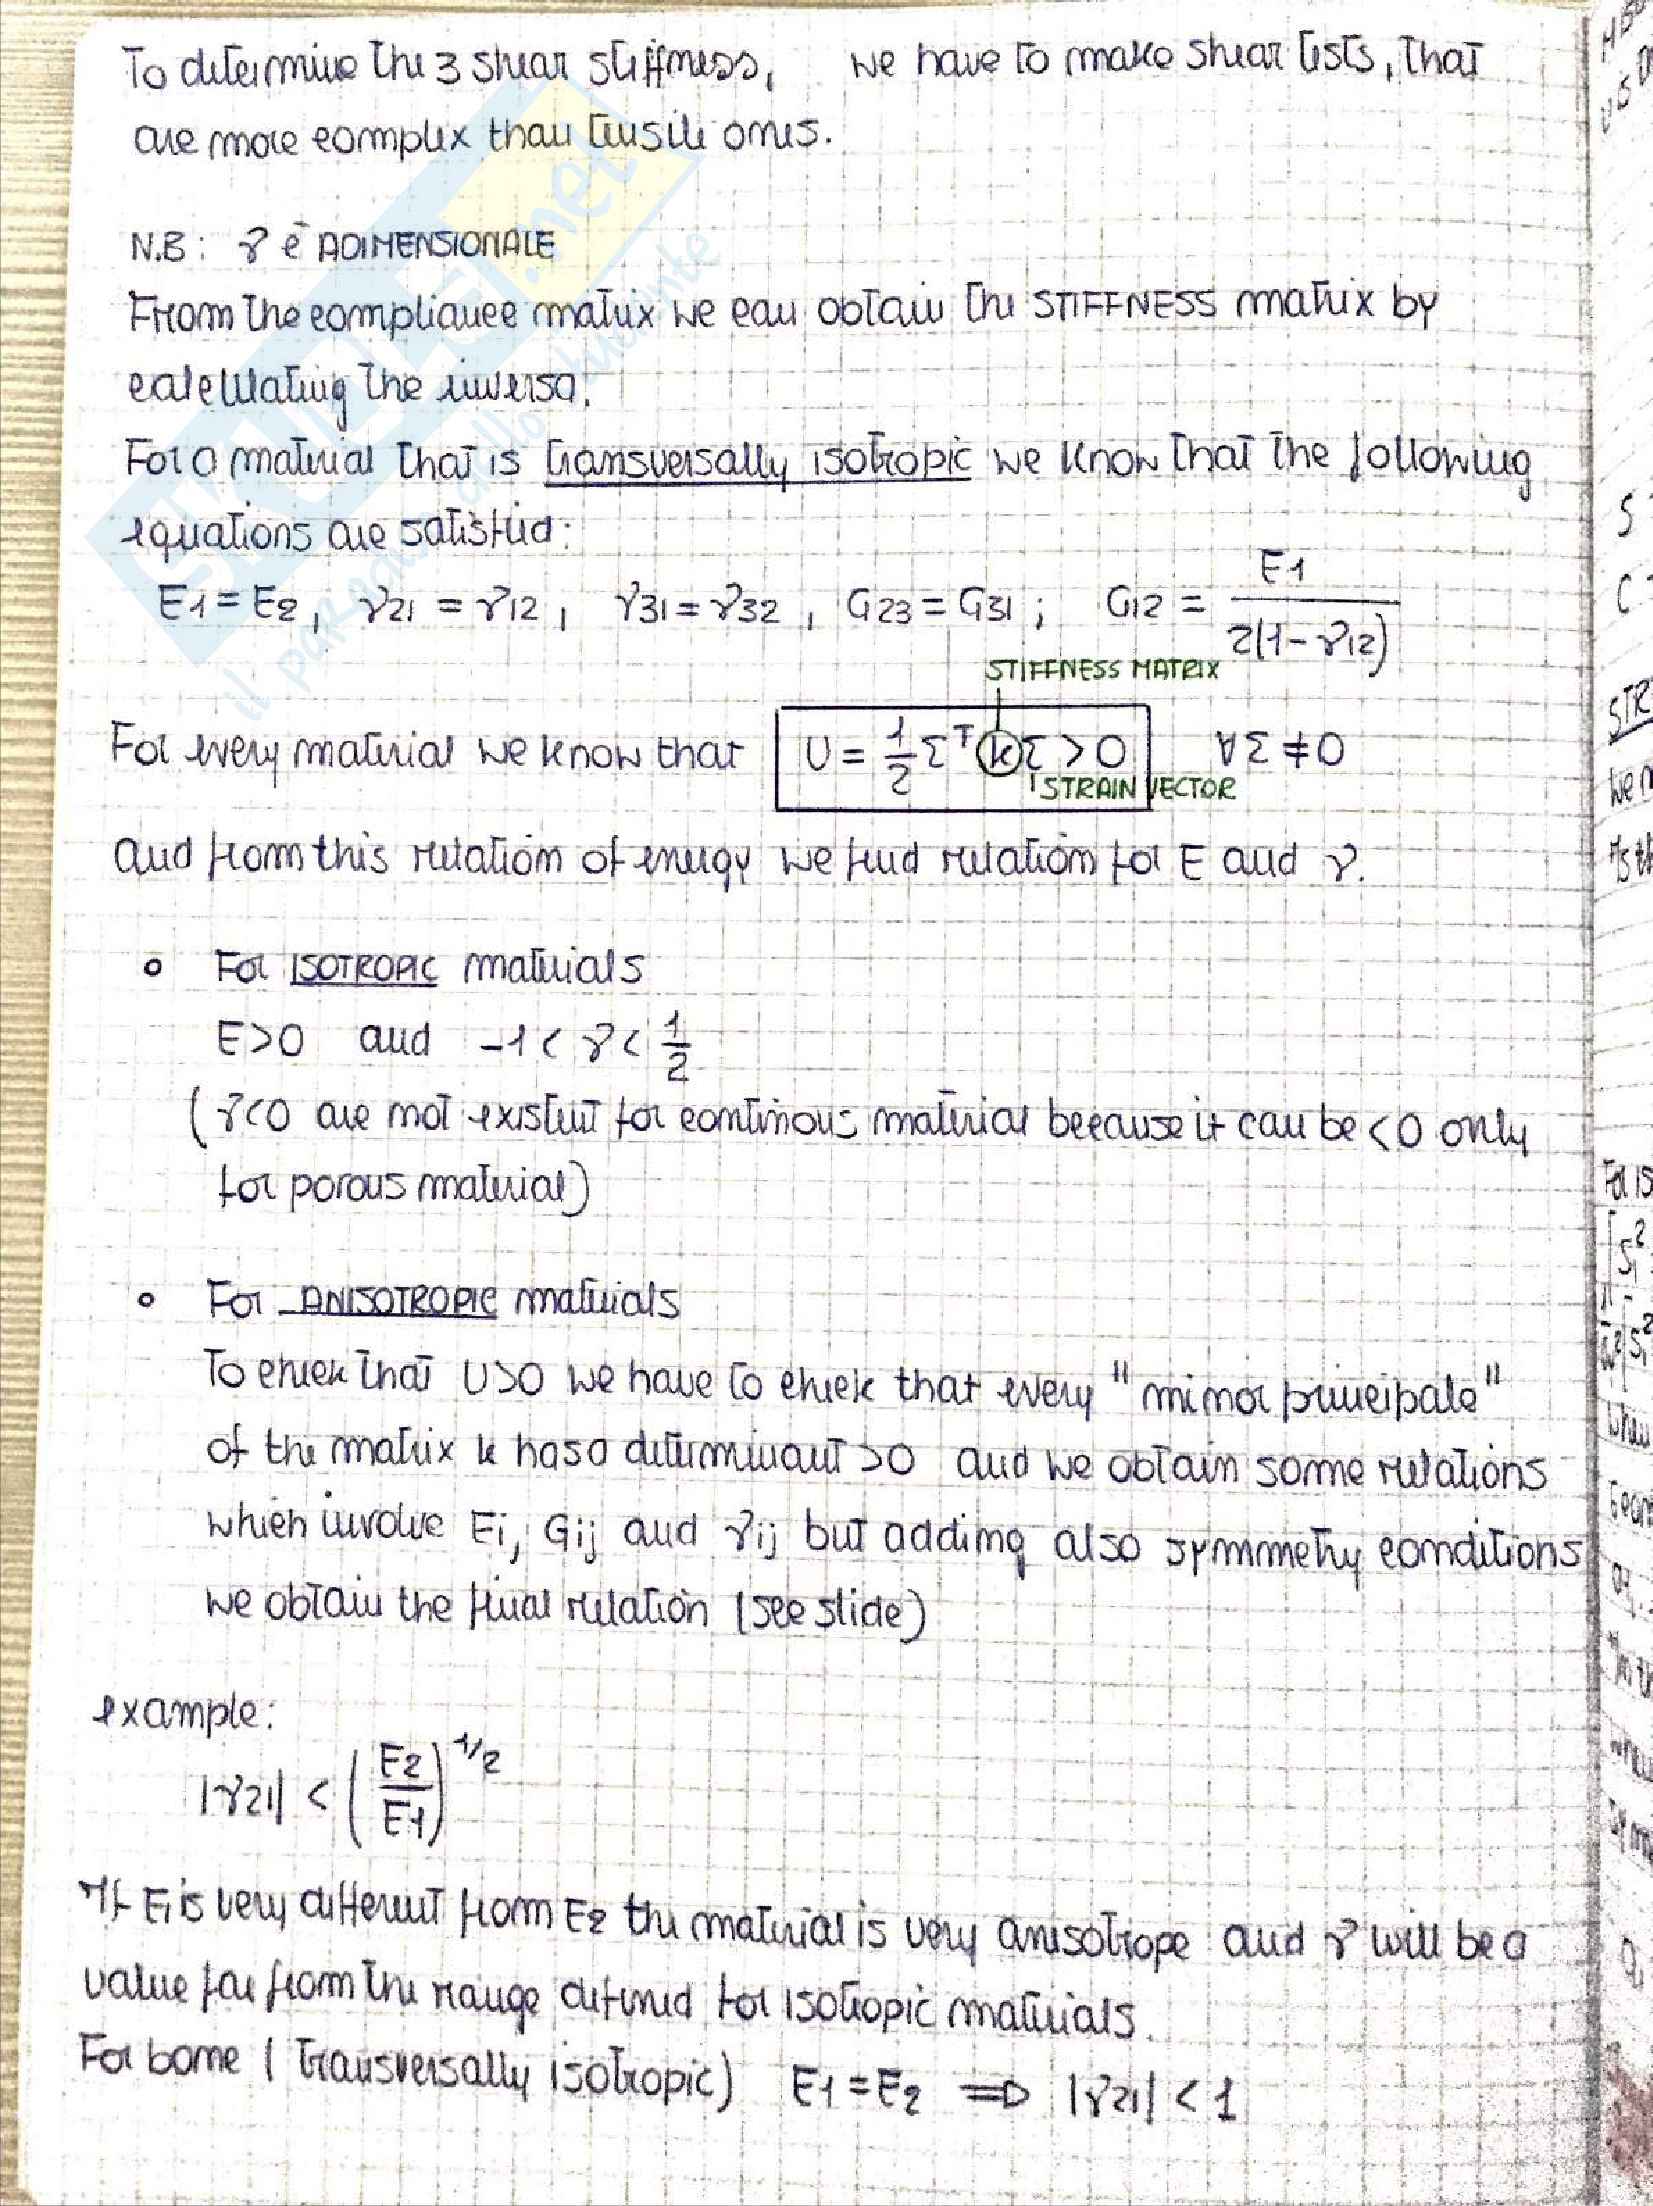 To determine the 3 shear stiffness, we have to make shear tests, that
are more complex than tensile ones.
N.B: γ è ADIMENSIONALE
From the compliance matrix we can obtain the STIFFNESS matrix by
calculating the inverse.
For a material that is transversally isotropic we know that the following
equations are satisfied:
E1 = E2, γ21 = γ12, γ31 = γ32, G23 = G31; G12 = E1 / 2(1-γ12)
STIFFNESS MATRIX
For every material we know that U = 1/2 Σ^T k Σ > 0 ∀Σ ≠ 0
STRAIN VECTOR
and from this relation of energy we find relation for E and γ.
o For ISOTROPIC materials
E>0 and -1 < γ < 1/2
(γ<0 are not existent for continous material because it can be <0 only
for porous material)
o For ANISOTROPIC materials
To check that U>0 we have to check that every "minor principale"
of the matrix k has a determinant >0 and we obtain some relations
which involve Ei, Gij and γij but adding also symmetry conditions
we obtain the final relation (see slide)
example:
|γ21| < (E2/E1)^1/2
If E1 is very different from E2 the material is very anisotrope and γ will be a
value far from the range defined for isotropic materials.
For bone (transversally isotropic) E1 = E2 => |γ21| < 1
SKUOLA.net